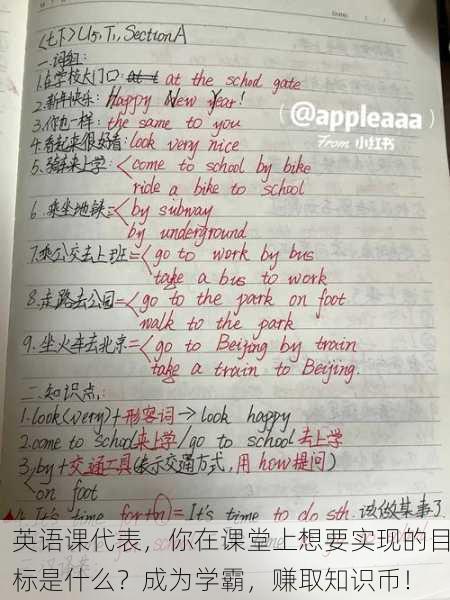 Date: / /
<七下> U5, T1, Section A
一. 词组:
1. 在学校大门口: at the school gate
2. 新年快乐: Happy New Year!
3. 你也一样: the same to you
@appleaaa
From 小红书
4. 看起来很好看: look very nice
5. 骑车来上学: come to school by bike
ride a bike to school
6. 乘坐地铁= by subway
by underground
7. 乘公交去上班= go to work by bus
take a bus to work
8. 走路去公园= go to the park on foot
walk to the park
9. 坐火车去北京= go to Beijing by train
take a train to Beijing
二. 知识点:
1. look (very) + 形容词 → look happy
2. come to school 来上学 / go to school 去上学
3. by + 交通工具 (表示交通方式, 用 how 提问)
on foot
It's time for + n = It's time to do sth. 该做某事了
英语课代表，你在课堂上想要实现的目
标是什么？成为学霸，赚取知识币！